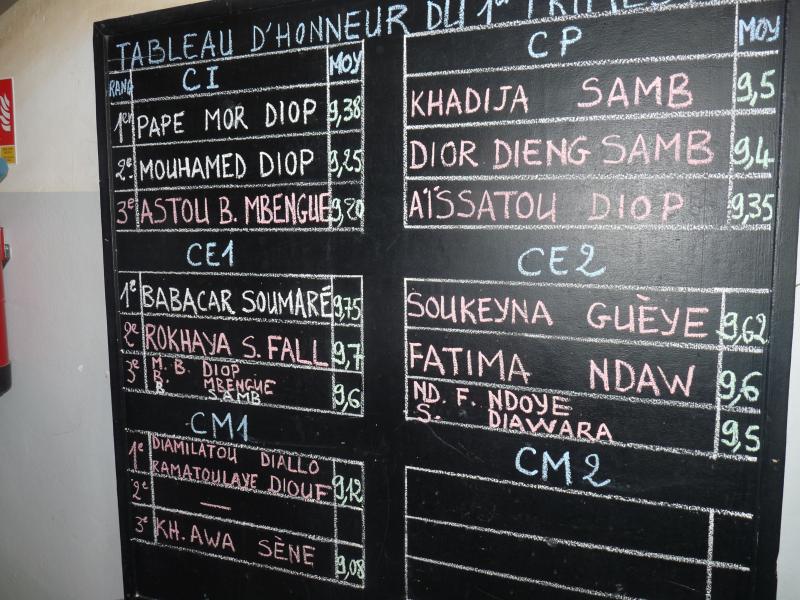 TABLEAU D'HONNEUR DU 1er TRIMES
RANG CI MOY
1er PAPE MOR DIOP 9,38
2e MOUHAMED DIOP 9,25
3e ASTOU B. MBENGUE 9,20
CP MOY
KHADIJA SAMB 9,5
DIOR DIENG SAMB 9,4
AÏSSATOU DIOP 9,35
CE1
1e BABACAR SOUMARÉ 9,75
2e ROKHAYA S. FALL 9,7
3e M. B. DIOP
B. MBENGUE
B. SAMB 9,6
CE2
SOUKEYNA GUÈYE 9,62
FATIMA NDAW 9,6
ND. F. NDOYE
S. DIAWARA 9,5
CM1
1e DIAMILATOU DIALLO
RAMATOULAYE DIOUF 9,12
2e —
3e KH. AWA SÈNE 9,08
CM2